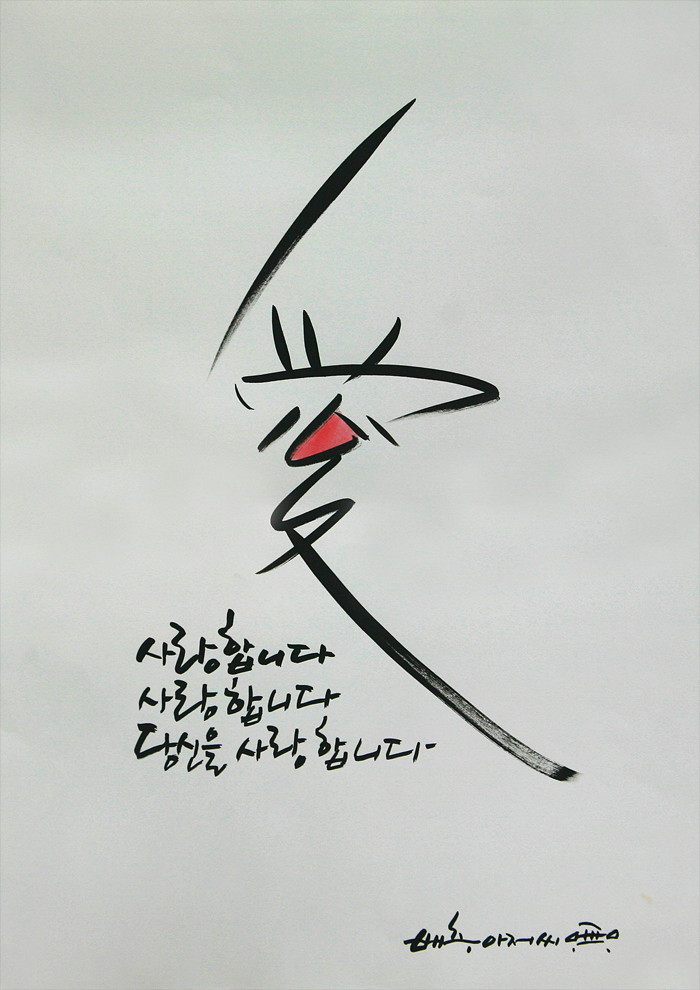 愛
사랑합니다
사랑합니다
당신을 사랑합니다
아저씨